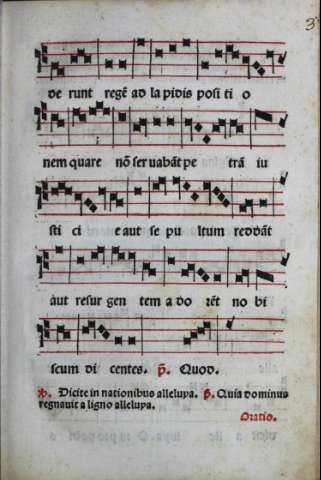 3
de runt regē ad la pidis posi ti o
nem quare nō ser uabāt pe trā iu
sti ci e aut se pu ltum reddāt
aut resur gen tem a do rēt no bi
scum di centes. ꝟ. Quod.
℣. Dicite in nationibus alleluya. ℟. Quia dominus
regnauit a ligno alleluya.
Oratio.